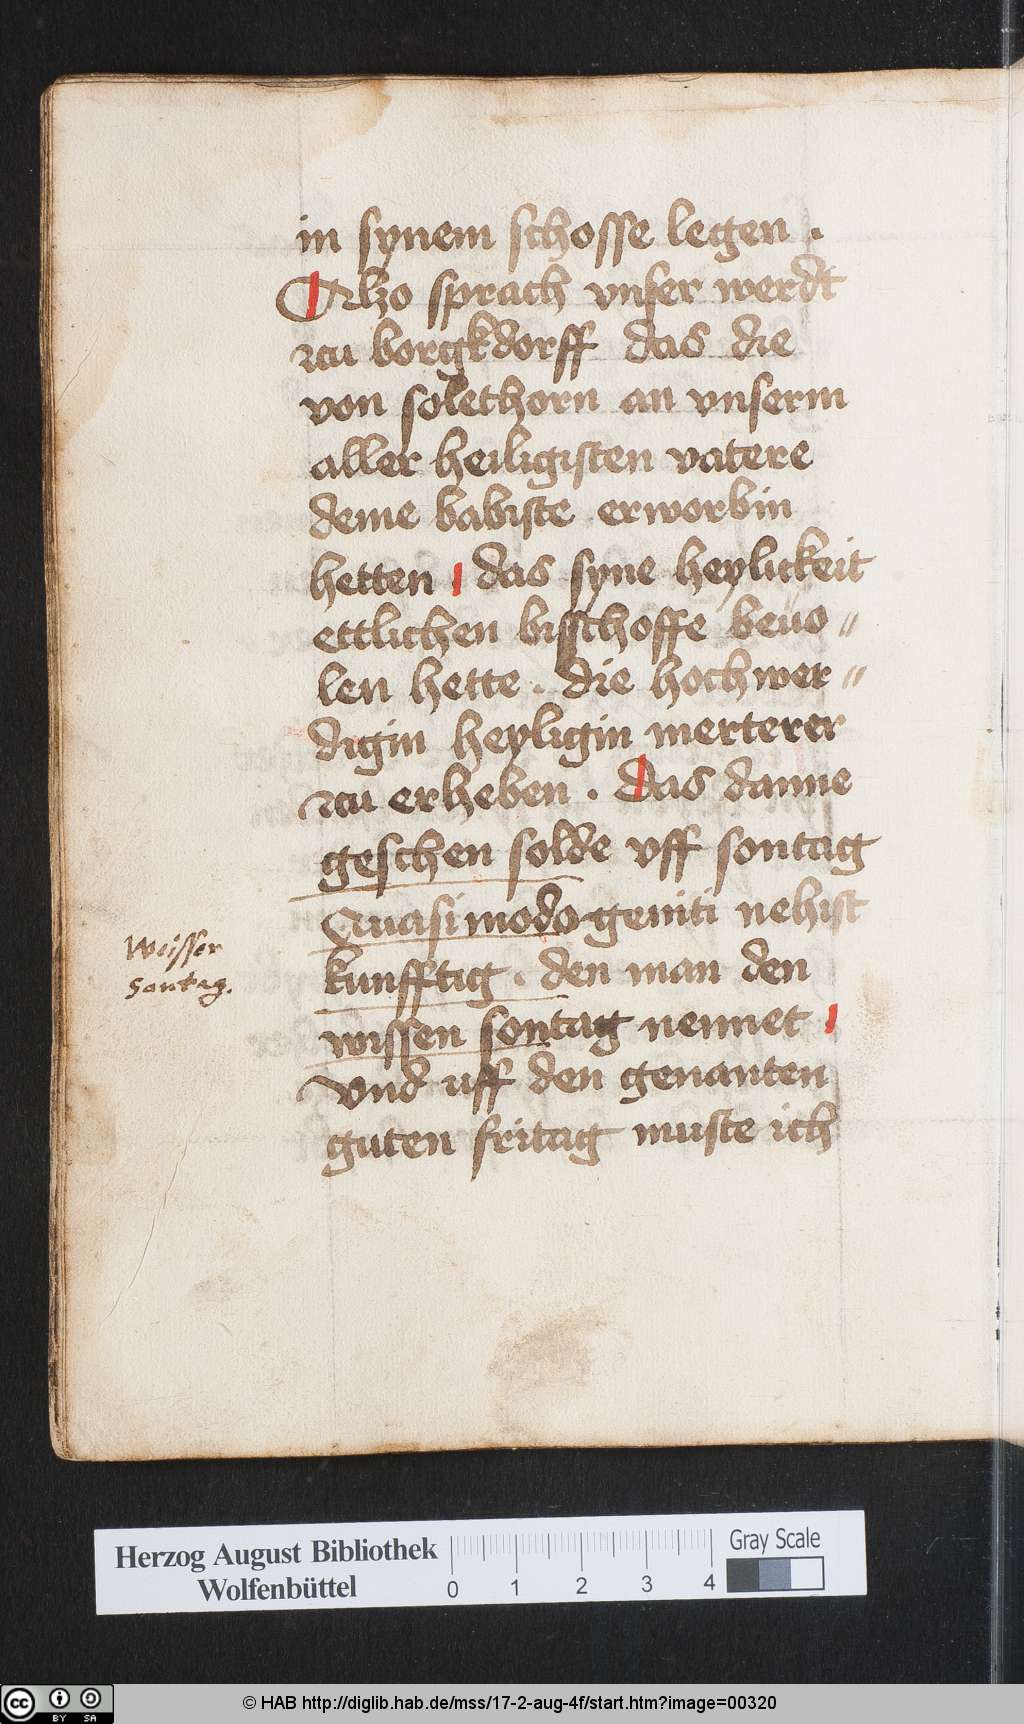 in synem schosse legen .
Alzo sprach vnser werdt
zcu borgkdorff das die
von solethorn an vnserm
aller heiligisten vatere
deme babiste erworbin
hetten . das syne heylickeit
ettlichen bisschoffe beuo〃
len hette . die hochwer〃
digin heyligin merterer
zcu erheben . Das danne
geschen solde vff sontag
Quasimodogeniti nehist
kunfftig . den man den
wissen sontag nennet
Weisser
Sontag.
Vnd uff den genanten
guten fritag muste ich
Herzog August Bibliothek
Wolfenbüttel
0 1 2 3 4
Gray Scale
cc BY SA
© HAB http://diglib.hab.de/mss/17-2-aug-4f/start.htm?image=00320